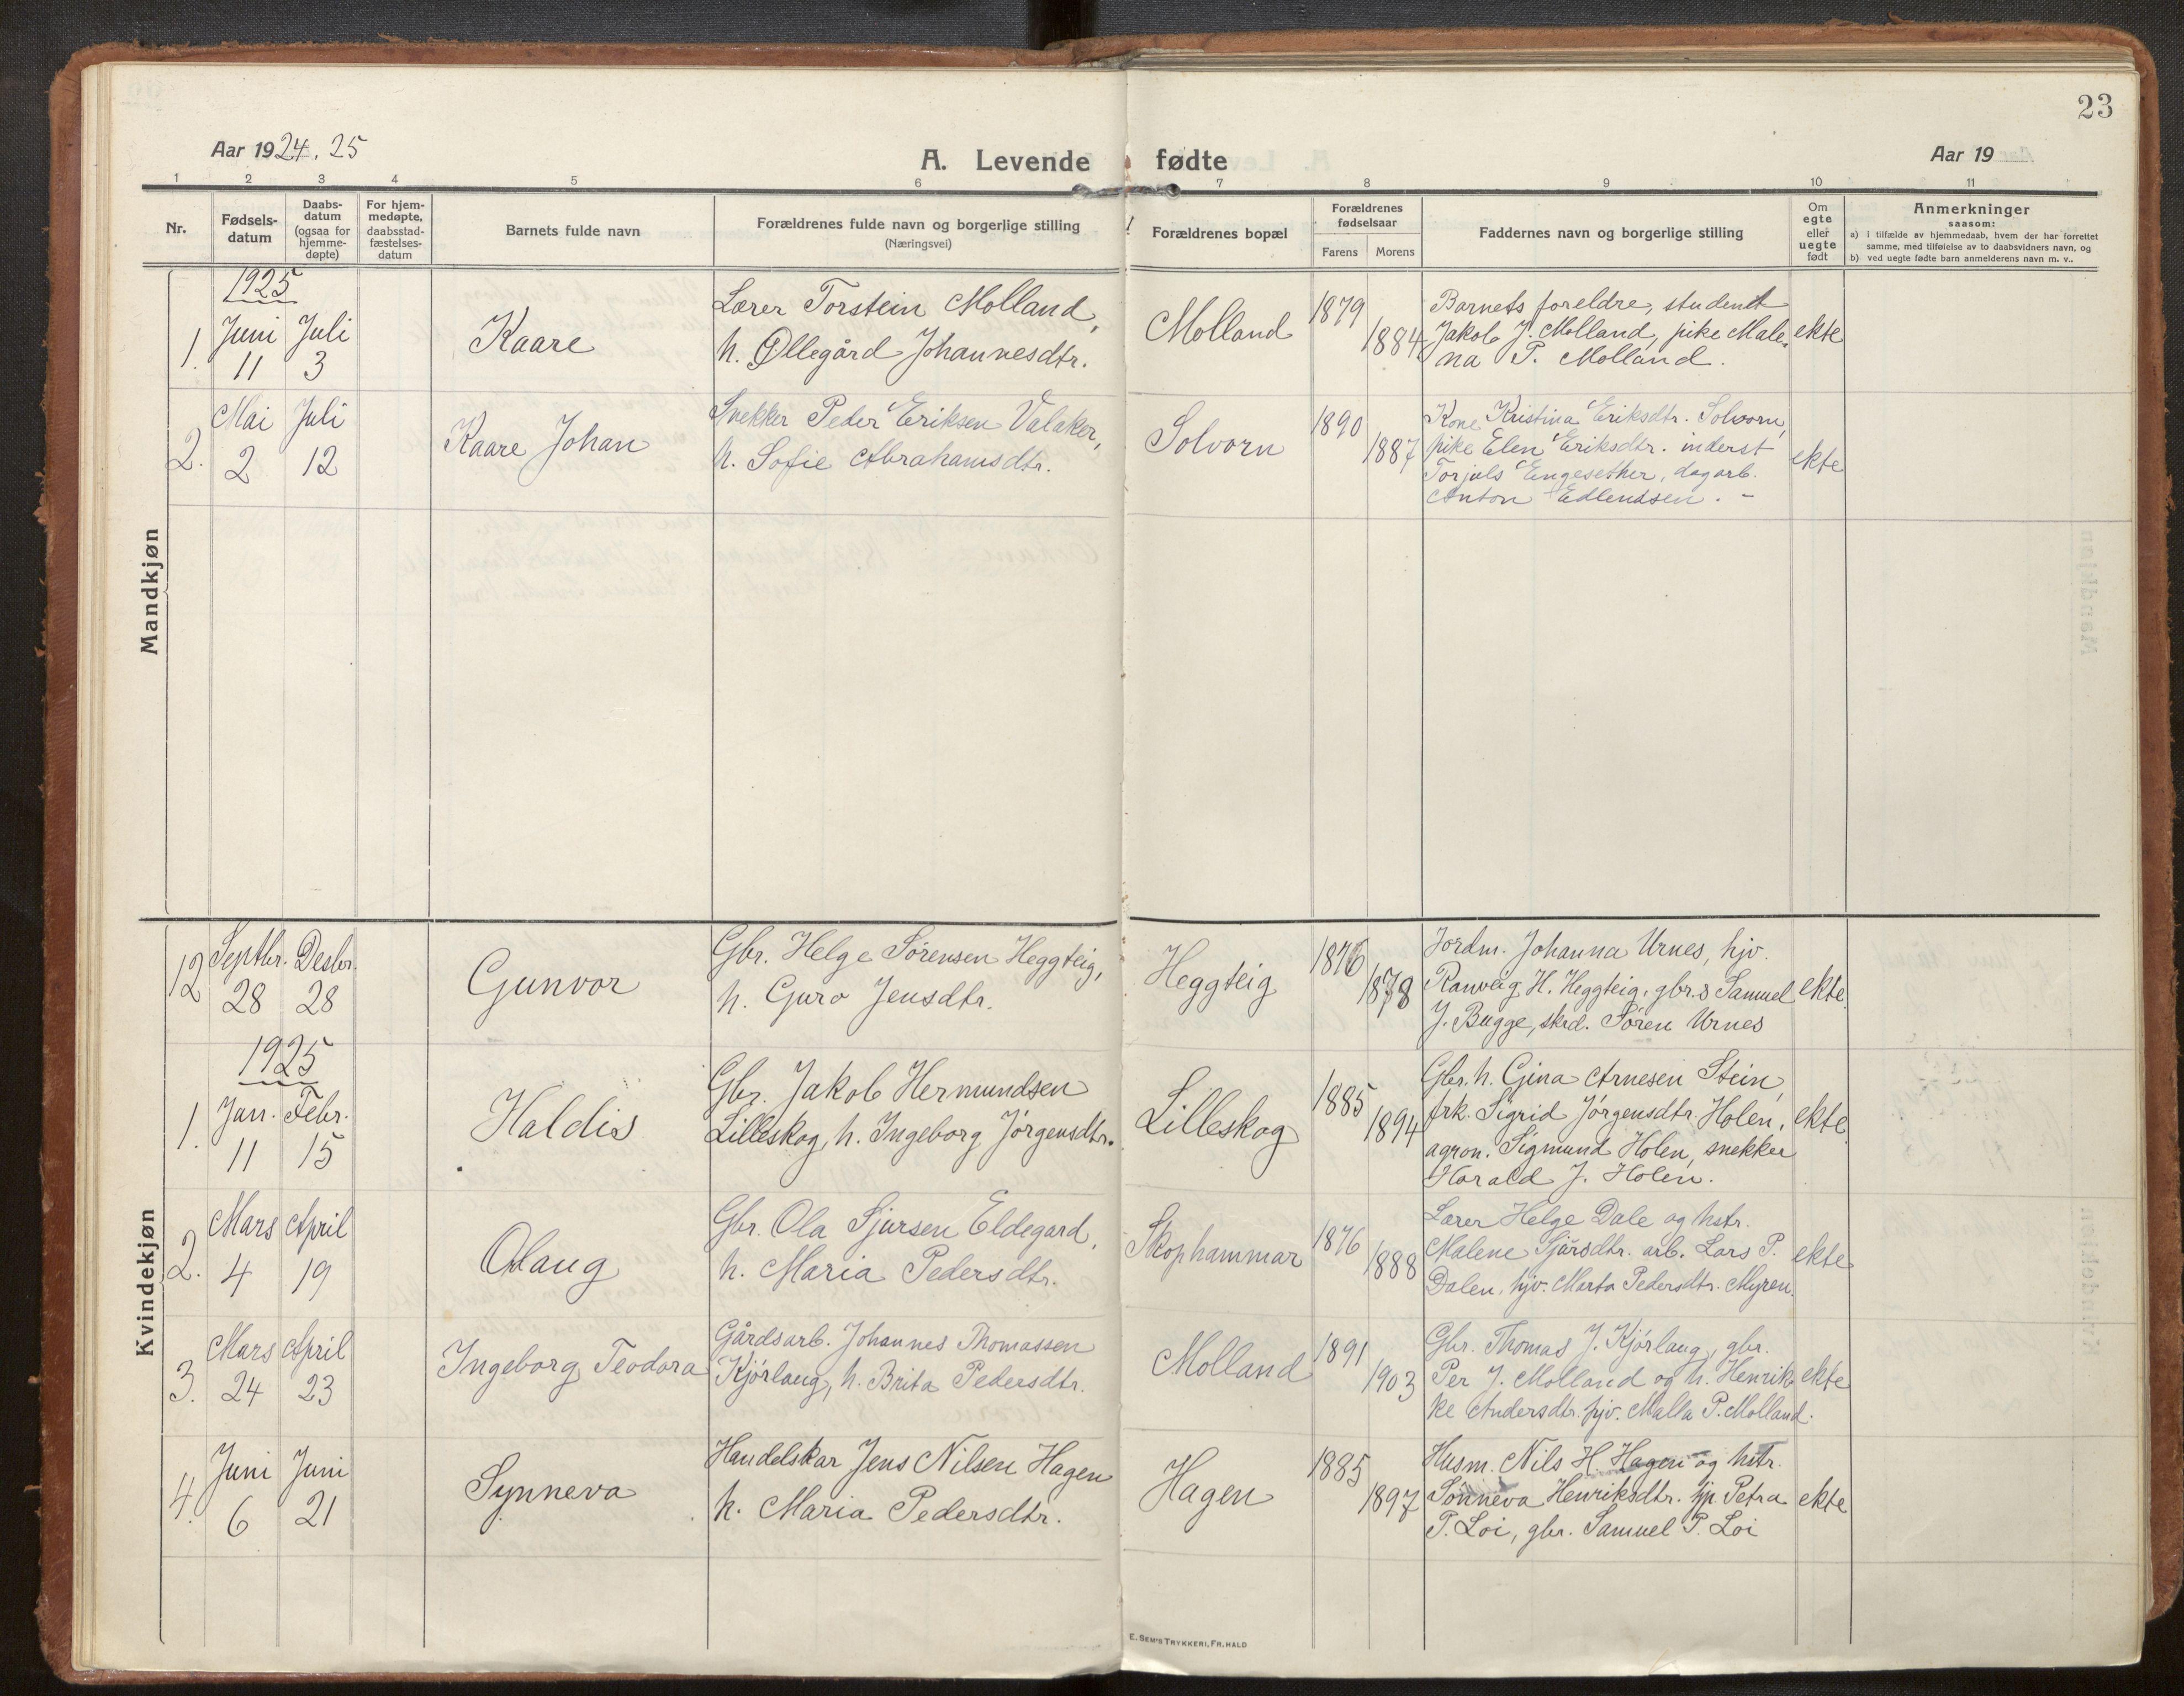 23
Aar 1924. 25
A. Levende fødte
Aar 19
1 2 3 4 5 6 7 8 9 10 11
Nr.
Fødsels-
datum
Daabs-
datum
(ogsaa for
hjemme-
døpte)
For hjem-
medøpte,
daabsstad-
fæstelses-
datum
Barnets fulde navn
Forældrenes fulde navn og borgerlige stilling
(Næringsvei)
Forældrenes bopæl
Forældrenes
fødselsaar
Farens Morens
Faddernes navn og borgerlige stilling
Om
egte
eller
uegte
født
Anmerkninger
saasom:
a) i tilfælde av hjemmedaab, hvem der har forrettet
samme, med tilføielse av to daabsvidners navn, og
b) ved uegte fødte barn anmelderens navn m. v..
Mandkjøn
1925
1.
Juni 11
Juli 3
Kaare
Lærer Torstein Molland,
h. Øllegård Johannesdtr.
Molland
1879
1884
Barnets foreldre, student
Jakob J. Molland, pike Male-
na P. Molland.
ekte
2.
Mai 2
Juli 12
Kaare Johan
Snekker Peder Eriksen Valaker,
h. Sofie Abrahamsdtr.
Solvorn
1890
1887
Kone Kristina Eriksdtr. Solvorn,
pike Elen Eriksdtr. inderst
Torjuls Engesether, dagarb.
Anton Edlendsen. -
ekte
Kvindekjøn
12
Septbr. 28
Desbr. 28
Gunvor
Gbr. Helge Sørensen Heggteig,
h. Guro Jensdtr.
Heggteig
1876
1878
Jordm. Johanna Urnes, hjv.
Ranveig H. Heggteig, gbr.s Samuel
J. Bugge, skrd. Søren Urnes
ekte.
1925
1.
Jan. 11
Febr. 15
Haldis
Gbr. Jakob Hermundsen
Lilleskog, h. Ingeborg Jørgensdtr.
Lilleskog
1885
1894
Gbr.h. Gina Arnesen Stein,
frk. Sigrid Jørgensdtr. Holen,
agron. Sigmund Holen, snekker
Harald J. Holen.
ekte.
2.
Mars 4
April 19
Olaug
Gbr. Ola Sjursen Eldegard,
h. Maria Pedersdtr.
Skophammar
1876
1888
Lærer Helge Dale og hstr.
Malene Sjúrsdtr. arb. Lars P.
Dalen, hjv. Marta Pedersdtr. Myren.
ekte.
3.
Mars 24
April 23
Ingeborg Teodora
Gårdsarb. Johannes Thomassen
Kjórlaug, h. Brita Pedersdtr.
Molland
1891
1903
Gbr. Thomas J. Kjórlaug, gbr.
Per J. Molland og h. Henrik-
ke Andersdtr. hjv. Malla P. Molland.
ekte
4.
Juni 6
Juni 21
Synneva
Handelskar Jens Nilsen Hagen
h. Maria Pedersdtr.
Hagen
1885
1897
Husm. Nils H. Hagen og hstr.
Sønneva Henriksdtr. hjp Petra
P. Loi, gbr. Samuel P. Loi
ekte
E. SEM'S TRYKKERI, FR.HALD